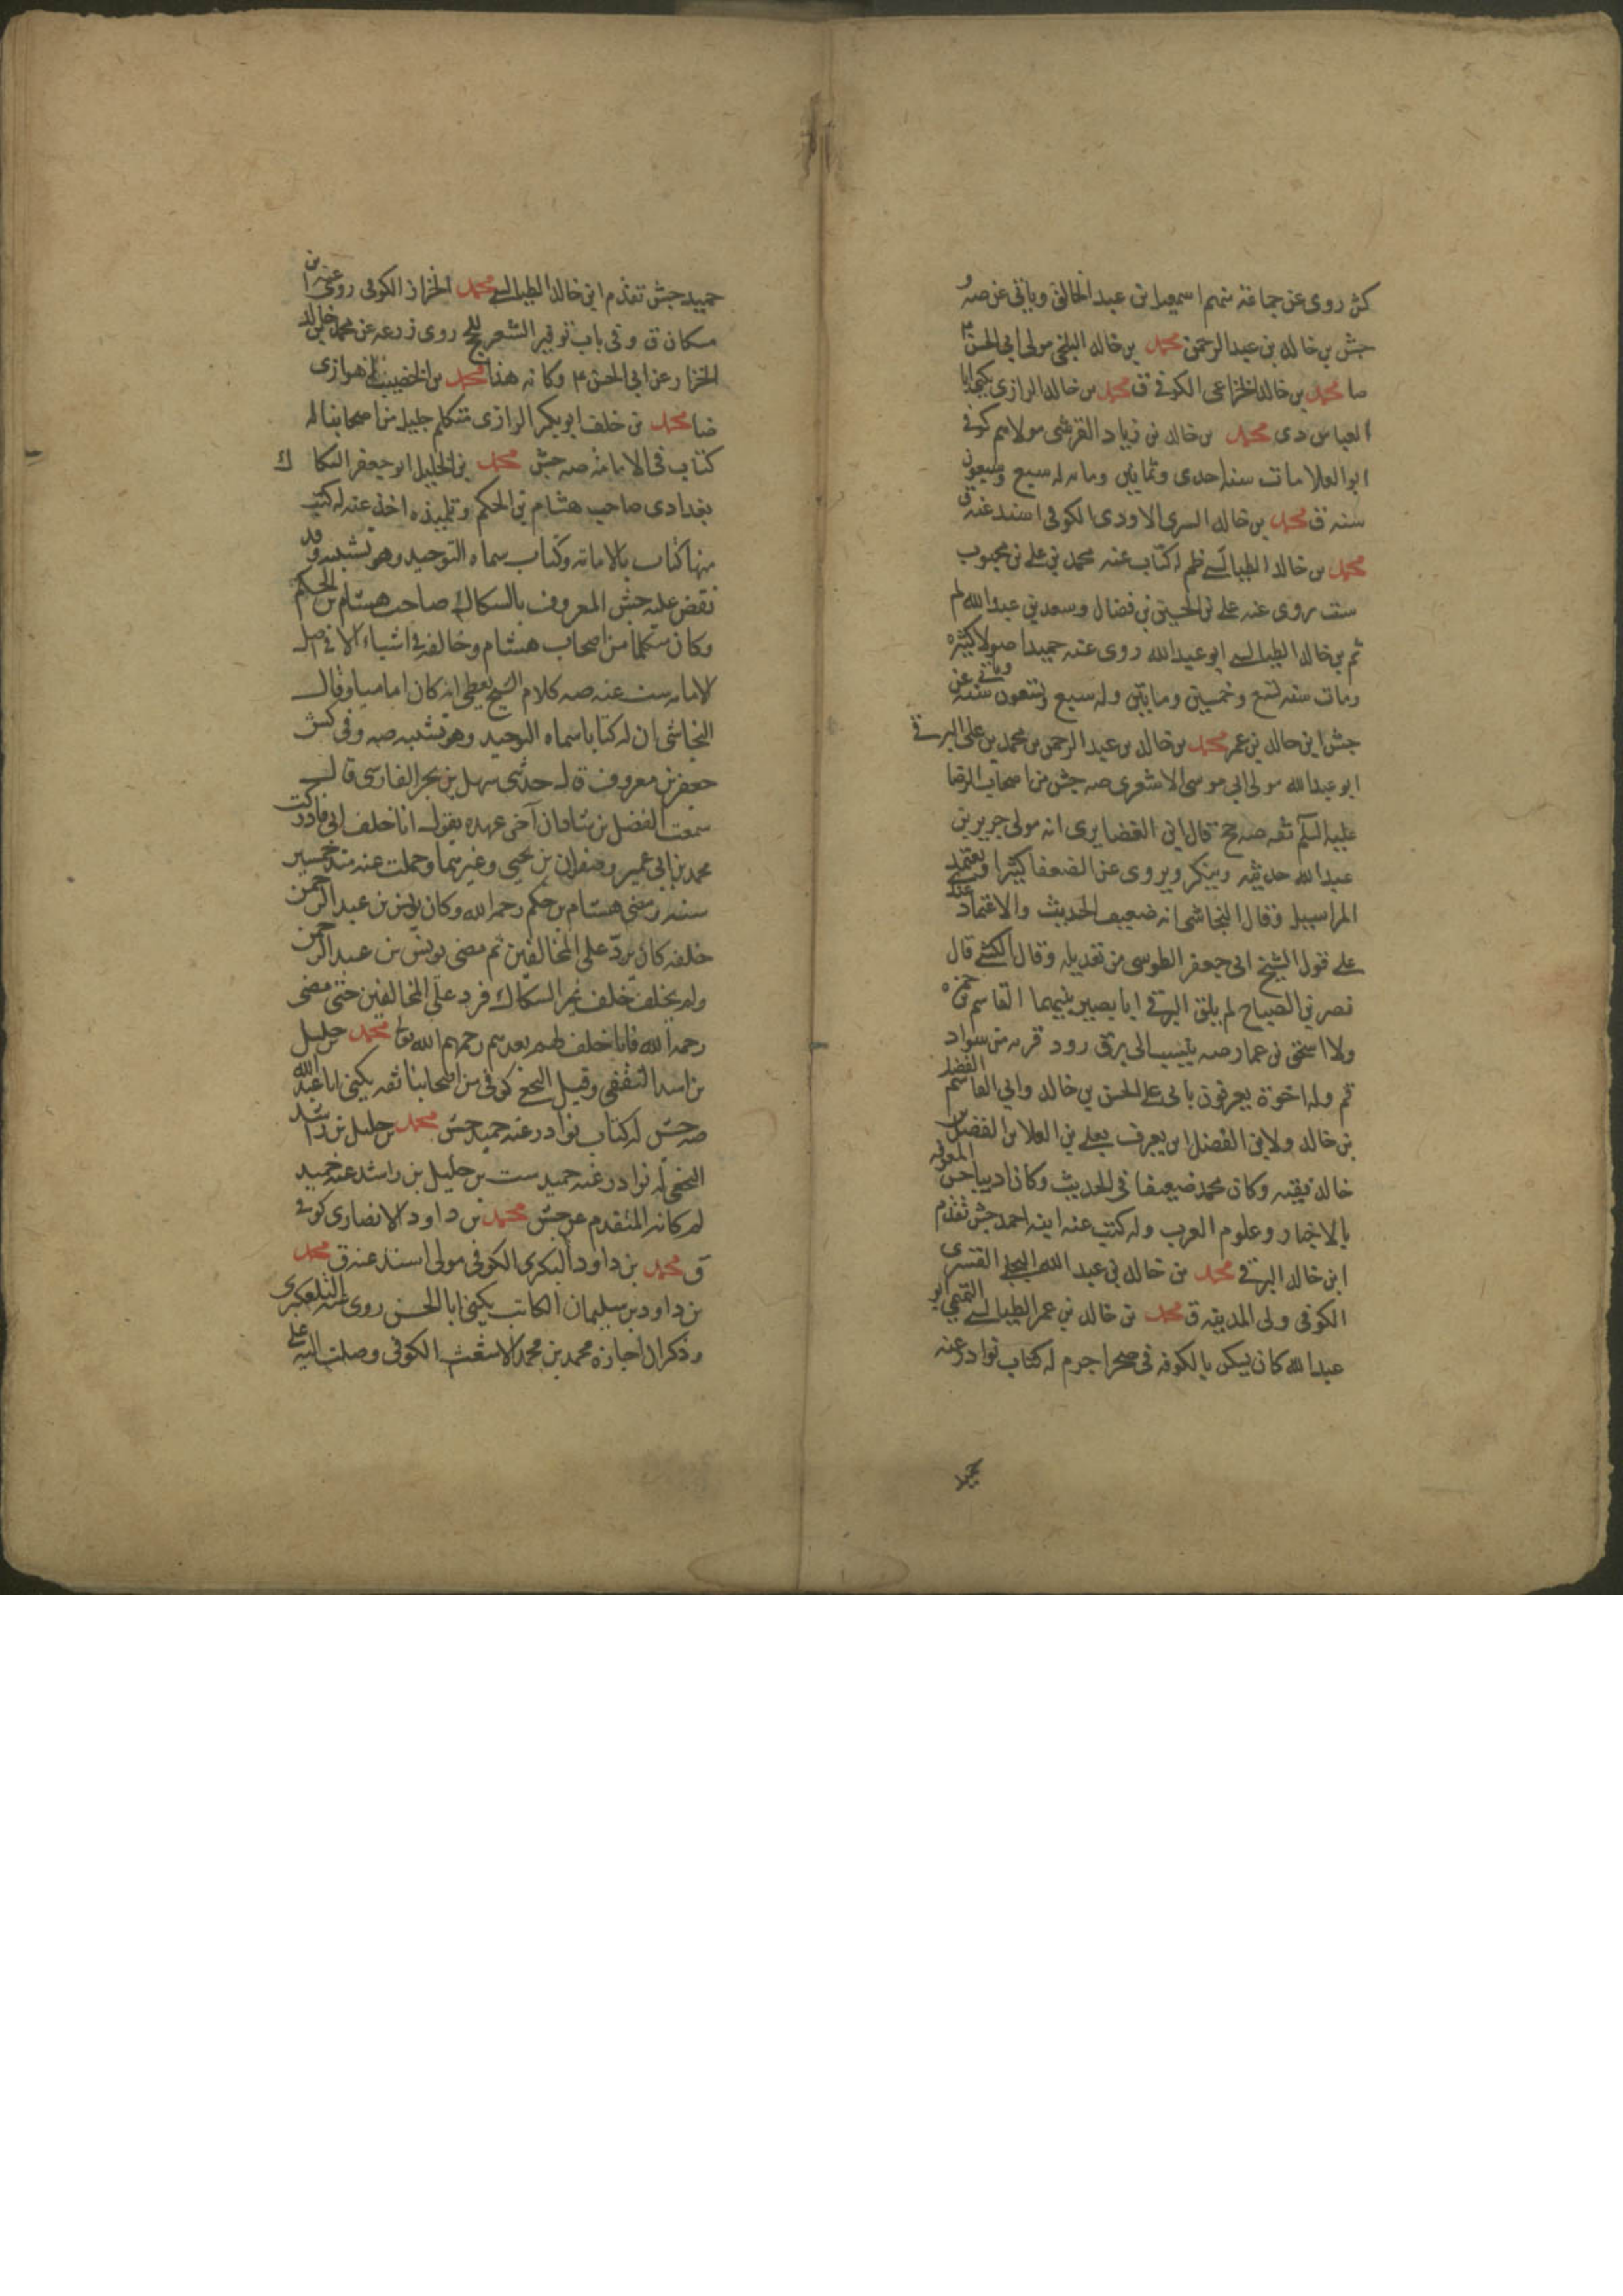 كش روى عن جماعة منهم اسمعيل بن عبد الخالق وياتى عن صه و
جش بن خالد بن عبد الرحمن محمد بن خالد البلخى مولى ابى الحسن م
ضا محمد بن خالد الخزاعى الكوفى ق محمد بن خالد الرازى يكنى ابا
العباس دى محمد بن خالد بن زياد القرشى مولاهم كوفى
ابو العلا مات سنة احدى وثمانين ومائه له سبع وسبعون
سنه ق محمد بن خالد السرى الاودى الكوفى اسند عنه ق
محمد بن خالد الطيالسى ظم له كتاب عنه محمد بن على بن محبوب
ست روى عنه على بن الحسين بن فضال وسعد بن عبد الله لم
ثم بن خالد الطيالسى ابو عبد الله روى عنه حميد اصولا كثيره
ومات سنه تسع وخمسين ومايتين وله سبع وتسعون سنه وياتى عن
جش ابن خالد بن عمر محمد بن خالد بن عبد الرحمن بن محمد بن على البرقى
ابو عبد الله مولى ابى موسى الاشعرى صه جش من اصحاب الرضا
عليه السلم ثقه صه جخ قال ابن الغضايرى انه مولى جرير بن
عبد الله حديثه وينكر ويروى عن الضعفا كثيرا ويعتمد
المراسيل وقال النجاشى انه ضعيف الحديث والاعتماد عندى
على قول الشيخ ابى جعفر الطوسى من تعديله وقال الكشى قال
نصر بن الصباح لم يلق البرقى ابا بصير بينهما القاسم بن حمزه
ولا اسحق بن عمار صه ينسب الى برق رود قريه من سواد
قم وله اخوة يعرفون بابى على الحسن بن خالد وابى القاسم الفضل
بن خالد ولابن الفضل ابن يعرف بعلى بن العلا بن الفضل بن
خالد فقيه وكان محمد ضعيفا فى الحديث وكان اديبا حسن المعرفه
بالاخبار وعلوم العرب وله كتب عنه ابنه احمد جش تقدم
ابن خالد البرقى محمد بن خالد بن عبد الله البجلى القسرى
الكوفى ولى المدينه ق محمد بن خالد بن عمر الطيالسى التميمى ابو
عبد الله كان يسكن بالكوفه فى صحرا جرم له كتاب نوادر عنه
حميد جش تقدم ابن خالد الطيالسى محمد الخزاز الكوفى روى عنه ابن
مسكان ق وفى باب توفير الشعر روى زرعه عن محمد بن خالد
الخزاز عن ابى الحسن م وكانه هذا محمد بن الخضيب الاهوازى
ضا محمد بن خلف ابو بكر الرازى متكلم جليل من اصحابنا له
كتاب فى الامامة صه جش محمد بن الخليل ابو جعفر السكا ك
بغدادى صاحب هشام بن الحكم وتلميذه اخذ عنه له كتب
منها كتاب بالامامة وكتاب سماه التوحيد وهو تشبيه وقد
نقض عليه جش المعروف بالسكاك صاحب هشام بن الحكم
وكان متكلما من اصحاب هشام وخالفه فى اشياء الا فى اصل
الامامه ست عنه صه كلام الشيخ يعطى انه كان اماميا وقال
النجاشى ان له كتابا سماه التوحيد وهو تشبيه صه وفى كش
جعفر بن معروف قال حدثنى سهل بن بحر الفارسى قال
سمعت الفضل بن شاذان آخر عهده يقول انا خلف لمن مضى ادركت
محمد بن ابى عمير وصفوان بن يحيى وغيرهما وحملت عنهم منذ خمسين
سنه ومضى هشام بن حكم رحمه الله وكان يونس بن عبد الرحمن
خلفه كان يردّ على المخالفين ثم مضى يونس بن عبد الرحمن
ولم يخلف خلف غير السكاك فرد على المخالفين حتى مضى
رحمه الله فانا خلف لهم بعدهم رحمهم الله محمد بن خليل
بن اسد الثقفى وقيل النخعى كوفى من اصحابنا ثقه يكنى ابا عبد الله
صه جش له كتاب نوادر عنه حميد جش محمد بن خليل بن راشد
النخعى له نوادر عنه حميد ست بن خليل بن راشد عنه حميد
لم كانه المتقدم عن جش محمد بن داود الانصارى كوفى
ق محمد بن داود البكرى الكوفى مولى اسند عنه ق محمد
بن داود بن سليمان الكاتب يكنى ابا الحسن روى عنه التلعكبرى
وذكر ان اجازة محمد بن محمد الاشعث الكوفى وصلت اليه على